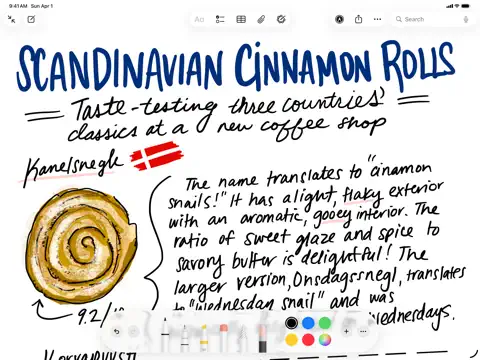 9:41 AM Sun Apr 1
Aa
Search
SCANDINAVIAN CINNAMON ROLLS
Taste-testing three countries'
classics at a new coffee shop
Kanelsnegl
The name translates to "cinamon
snails!" It has a light, flaky exterior
with an aromatic, gooey interior. The
ratio of sweet glaze and spice to
savory butter is delightful! The
larger version, Onsdagssnegl, translates
to "Wednesday snail" and was
Wednesdays.
9.2/10